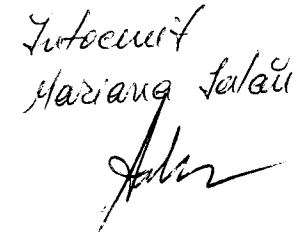 Intocmit
Mariana Salău